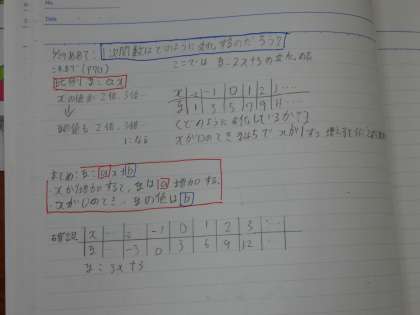 No.
Date
めあて: 1次関数はどのように変化するのだろう?
これまで (P70)
ここでは y=2x+5の変化のよ
比例 y=ax
xの値が2倍、3倍…
↓
yの値も2倍、3倍…
になる
x … -1 0 1 2 3 …
y 1 3 5 7 9 11 …
(どのように変化しているか?)
xが0のときyは5で xが1ずつ増えると
まとめ: y=ax+b
・xが1増加すると、yはa増加する。
・xが0のとき、yの値はb
確認 x … -2 -1 0 1 2 3 …
y … -3 0 3 6 9 12 …
y=3x+3